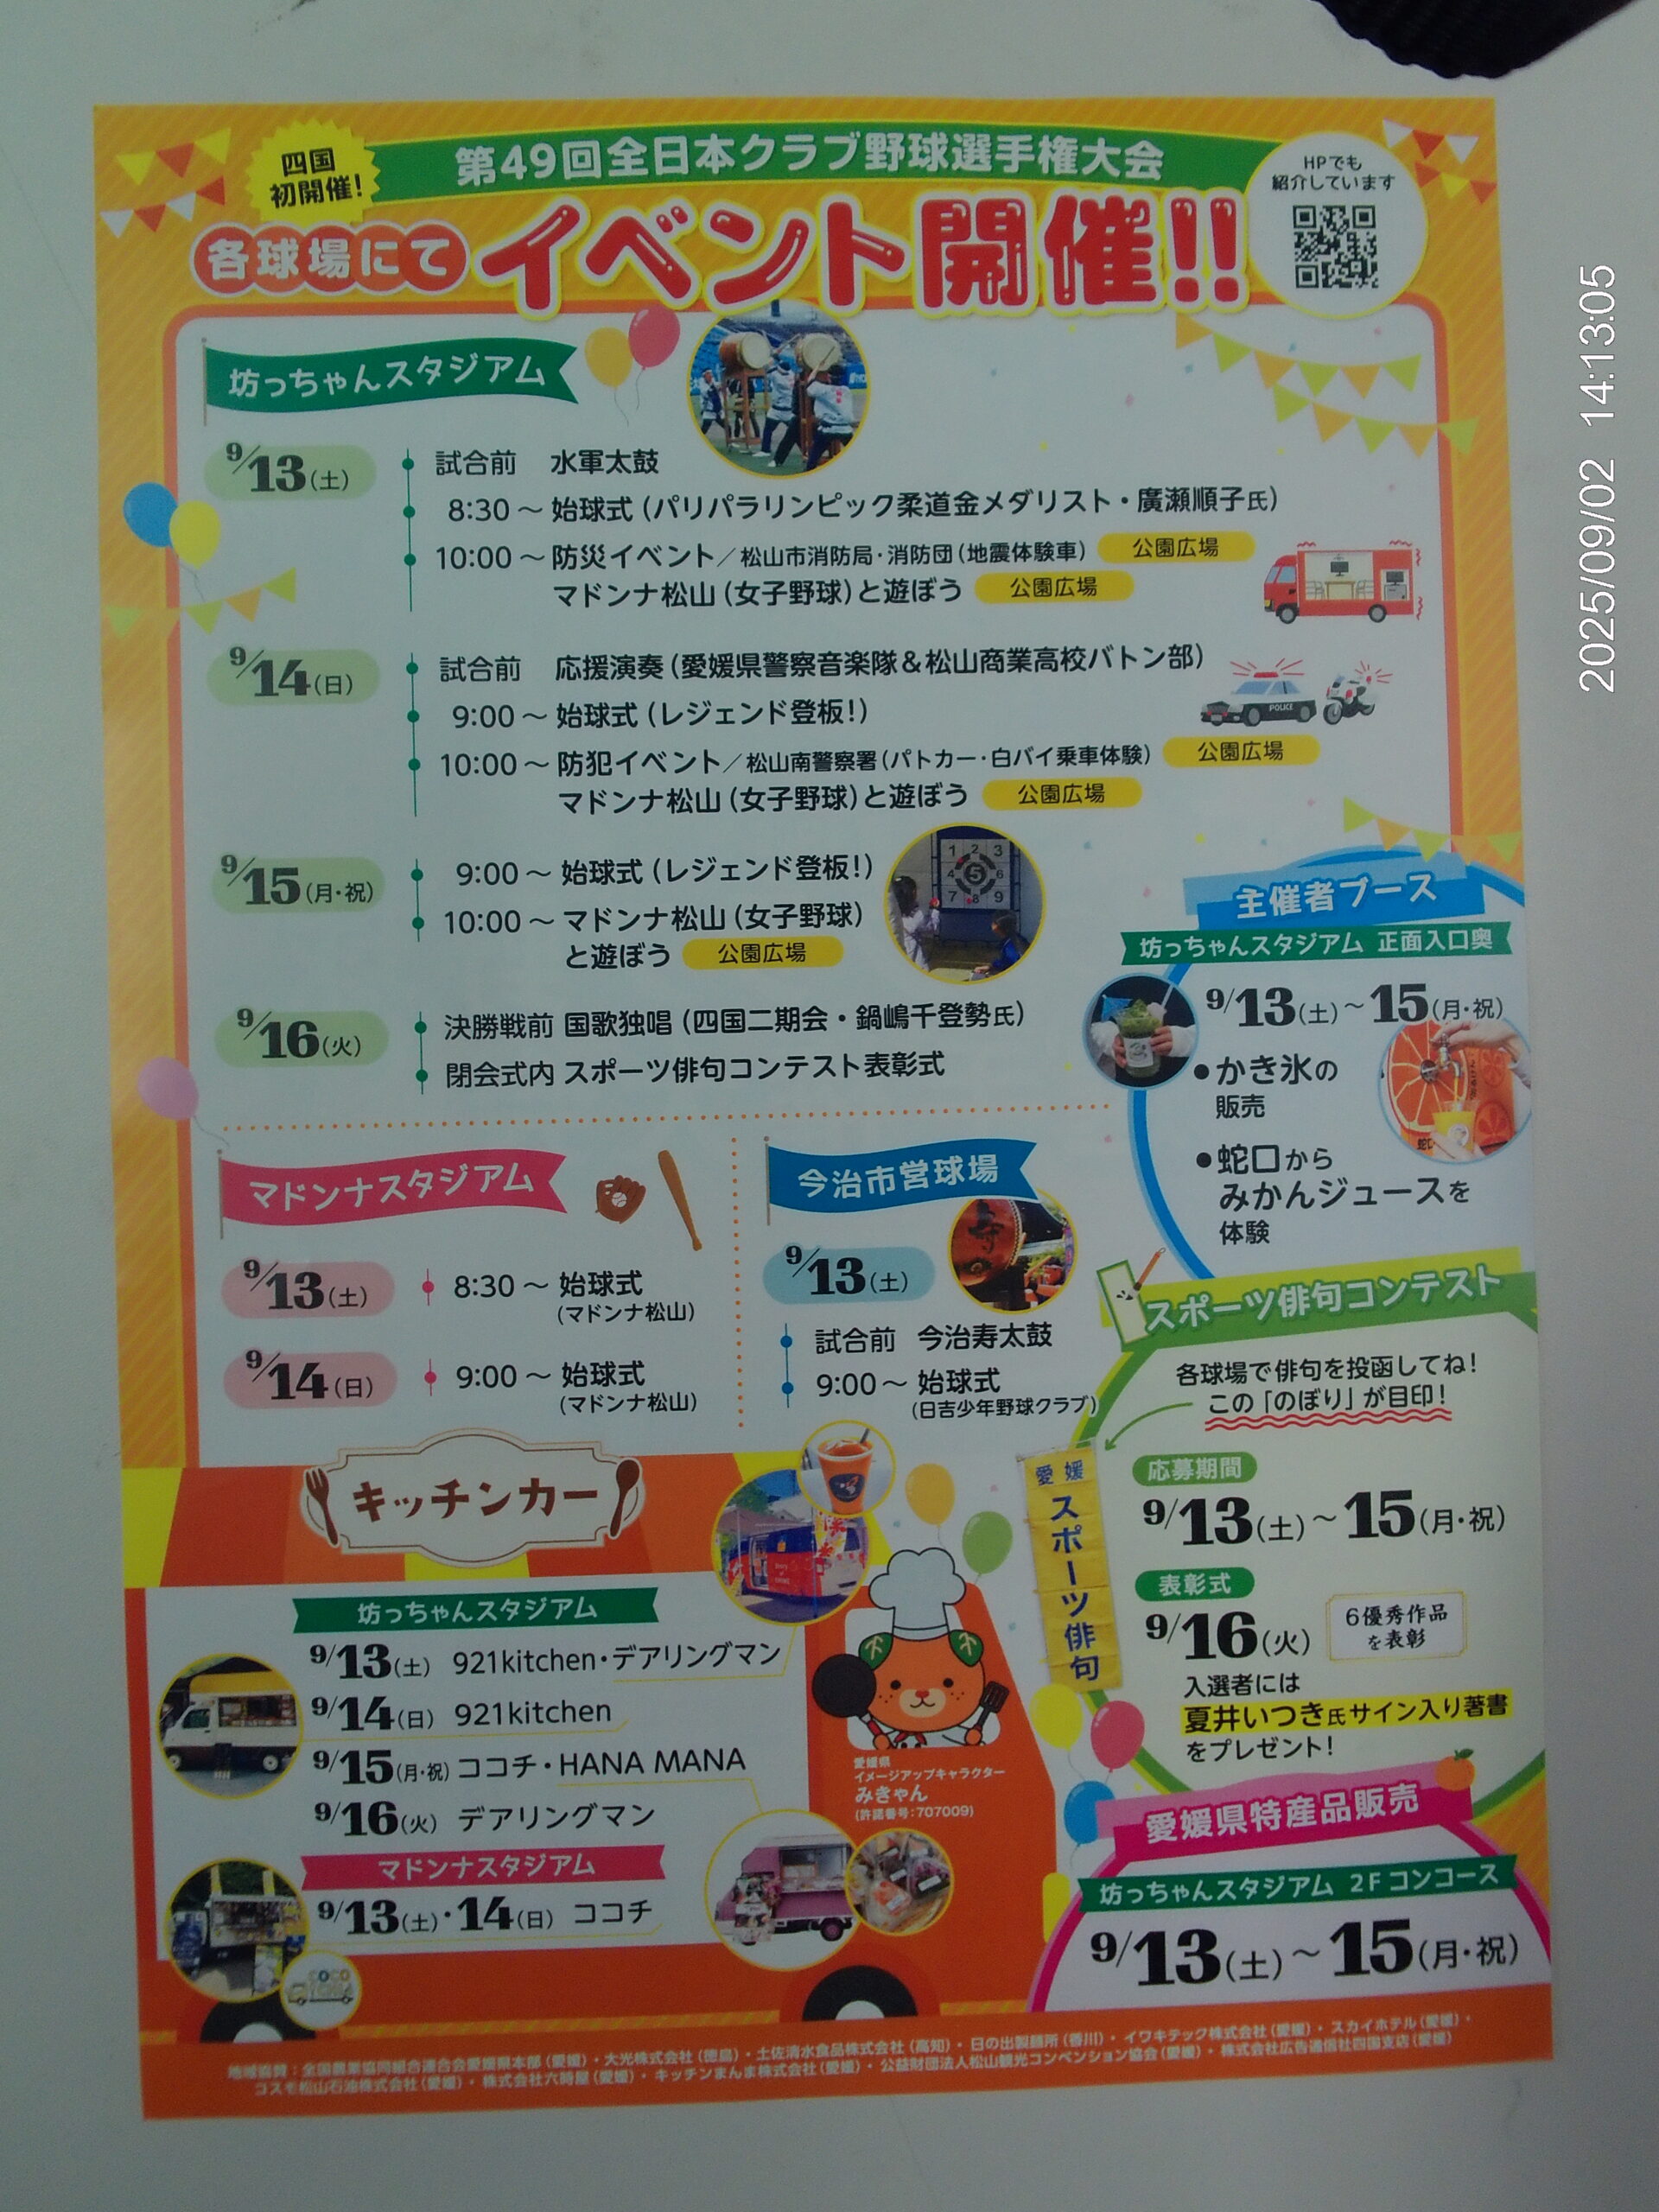 四国
初開催!
第49回全日本クラブ野球選手権大会
HPでも
紹介しています
各球場にて
イベント開催!!
坊っちゃんスタジアム
9/13(土)
試合前 水軍太鼓
8:30～始球式(パリパラリンピック柔道金メダリスト・廣瀬順子氏)
10:00～防災イベント/松山市消防局・消防団(地震体験車) 公園広場
マドンナ松山(女子野球)と遊ぼう 公園広場
9/14(日)
試合前 応援演奏(愛媛県警察音楽隊&松山商業高校バトン部)
9:00～始球式(レジェンド登板!)
POLICE
10:00～防犯イベント/松山南警察署(パトカー・白バイ乗車体験) 公園広場
マドンナ松山(女子野球)と遊ぼう 公園広場
9/15(月・祝)
9:00～始球式(レジェンド登板!)
10:00～マドンナ松山(女子野球)
と遊ぼう 公園広場
1 2 3
4 5 6
7 8 9
9/16(火)
決勝戦前 国歌独唱(四国二期会・鍋嶋千登勢氏)
閉会式内 スポーツ俳句コンテスト表彰式
主催者ブース
坊っちゃんスタジアム 正面入口奥
9/13(土)～15(月・祝)
●かき氷の
販売
●蛇口から
みかんジュースを
体験
マドンナスタジアム
9/13(土)
8:30～始球式
(マドンナ松山)
9/14(日)
9:00～始球式
(マドンナ松山)
今治市営球場
9/13(土)
試合前 今治寿太鼓
9:00～始球式
(日吉少年野球クラブ)
スポーツ俳句コンテスト
各球場で俳句を投函してね!
この「のぼり」が目印!
愛媛
スポーツ俳句
応募期間
9/13(土)～15(月・祝)
表彰式
9/16(火)
6優秀作品
を表彰
入選者には
夏井いつき氏サイン入り著書
をプレゼント!
キッチンカー
坊っちゃんスタジアム
9/13(土) 921kitchen・デアリングマン
9/14(日) 921kitchen
9/15(月・祝) ココチ・HANA MANA
9/16(火) デアリングマン
マドンナスタジアム
9/13(土)・14(日) ココチ
愛媛県
イメージアップキャラクター
みきゃん
(許諾番号:707009)
愛媛県特産品販売
坊っちゃんスタジアム 2Fコンコース
9/13(土)～15(月・祝)
地域協賛:全国農業協同組合連合会愛媛県本部(愛媛)・大光株式会社(徳島)・土佐清水食品株式会社(高知)・日の出製麺所(香川)・イワキテック株式会社(愛媛)・スカイホテル(愛媛)・
コスモ松山石油株式会社(愛媛)・株式会社六時屋(愛媛)・キッチンまんま株式会社(愛媛)・公益財団法人松山観光コンベンション協会(愛媛)・株式会社広告通信社四国支店(愛媛)
2025/09/02 14:13:05